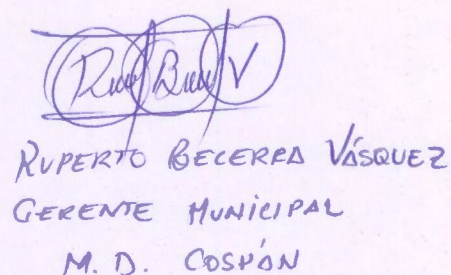 RUPERTO BECERRA VÁSQUEZ
GERENTE MUNICIPAL
M. D. COSPÁN